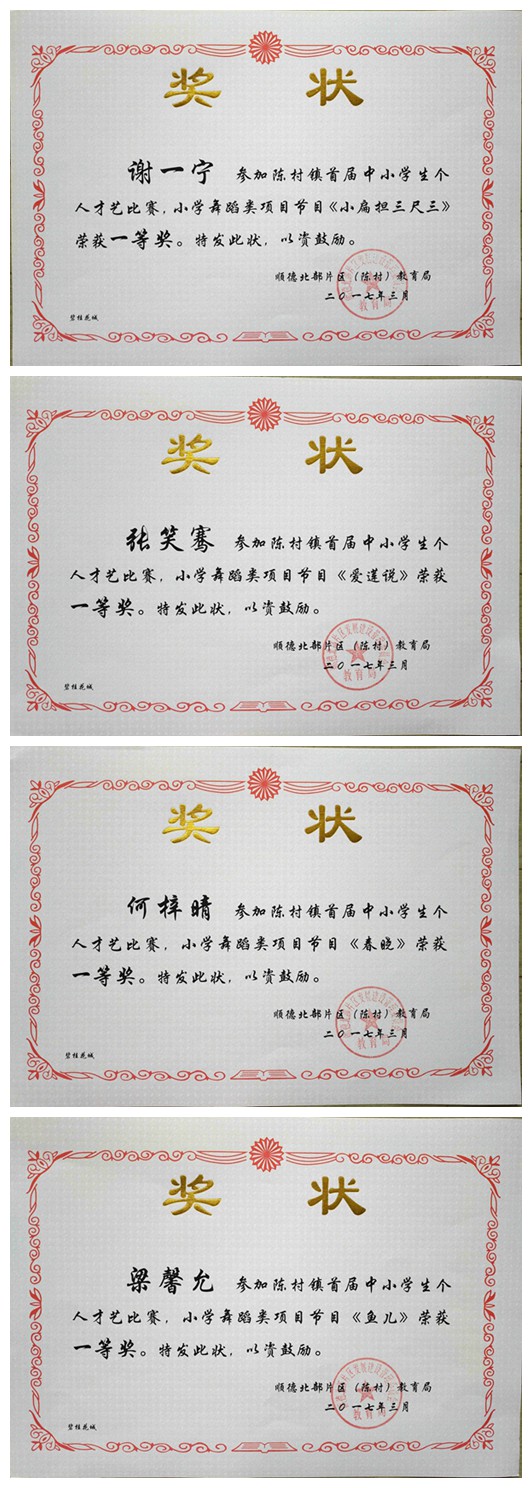 奖 状
谢一宁 参加陈村镇首届中小学生个
人才艺比赛，小学舞蹈类项目节目《小扁担三尺三》
荣获一等奖。特发此状，以资鼓励。
顺德北部片区（陈村）教育局
二〇一七年三月
教育局
碧桂花城
奖 状
张笑骞 参加陈村镇首届中小学生个
人才艺比赛，小学舞蹈类项目节目《爱莲说》荣获
一等奖。特发此状，以资鼓励。
顺德北部片区（陈村）教育局
二〇一七年三月
教育局
碧桂花城
奖 状
何梓晴 参加陈村镇首届中小学生个
人才艺比赛，小学舞蹈类项目节目《春晓》荣获
一等奖。特发此状，以资鼓励。
顺德北部片区（陈村）教育局
二〇一七年三月
教育局
碧桂花城
奖 状
梁馨允 参加陈村镇首届中小学生个
人才艺比赛，小学舞蹈类项目节目《鱼儿》荣获
一等奖。特发此状，以资鼓励。
顺德北部片区（陈村）教育局
二〇一七年三月
教育局
碧桂花城